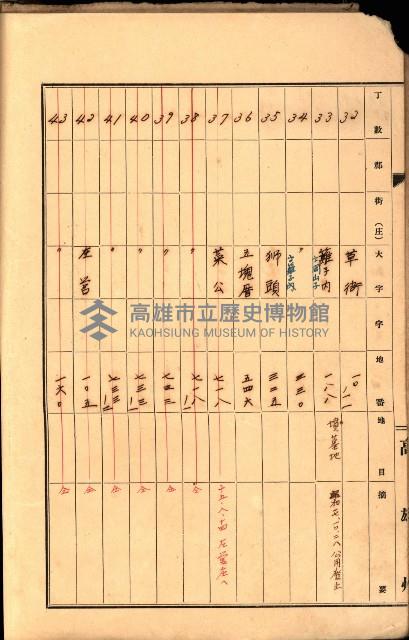 丁數 郡 街(庄) 大字 字 地番 地目 摘要
32 草衙 一〇ノ二
33 籬子內 一八八 墳墓地
34 〃 二三〇
35 獅頭 三二五
36 五塊厝 五四六
37 菜公 七一八 十五、八、一四 左營庄へ
38 〃 七一八ノ一 仝
39 〃 七二三 仝
40 〃 七三三 仝
41 〃 七三三ノ一 仝
42 左營 一〇五 仝
43 〃 一六〇 仝
高雄州
高雄市立歷史博物館
KAOHSIUNG MUSEUM OF HISTORY